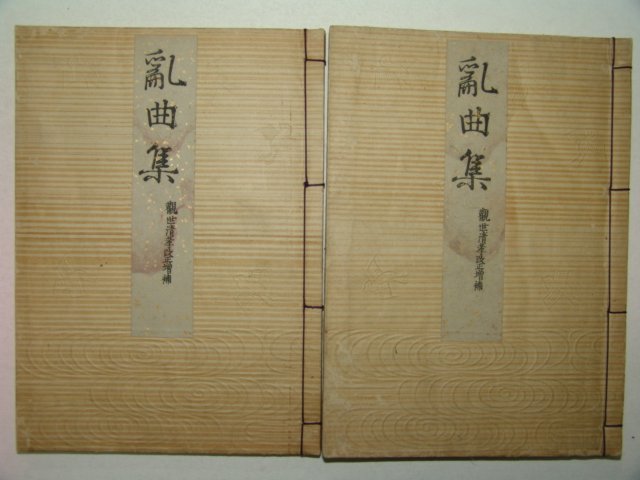 亂曲集
觀世清孝改正增補
亂曲集
觀世清孝改正增補